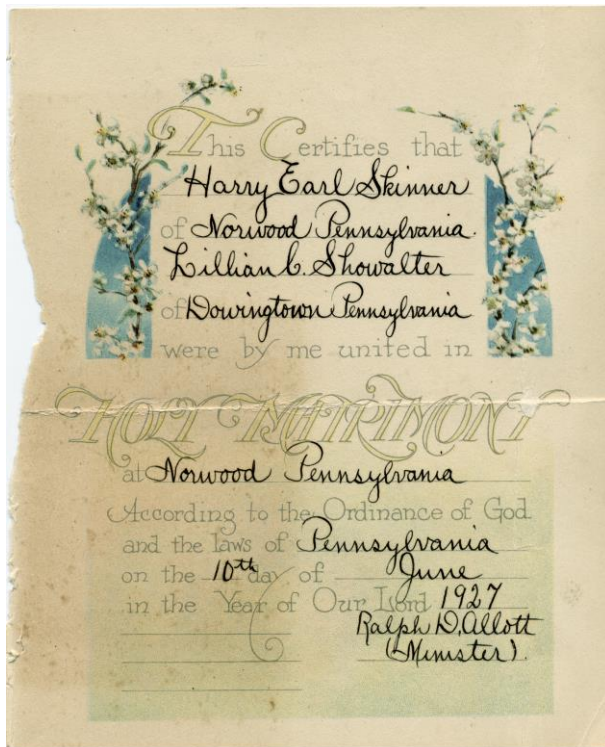 This Certifies that
Harry Earl Skinner
of Norwood Pennsylvania.
Lillian C. Showalter
of Dowingtown Pennsylvania
were by me united in
HOLY MATRIMONY
at Norwood Pennsylvania
According to the Ordinance of God
and the laws of Pennsylvania
on the 10th day of June
in the Year of Our Lord 1927
Ralph D. Allott
(Minister)